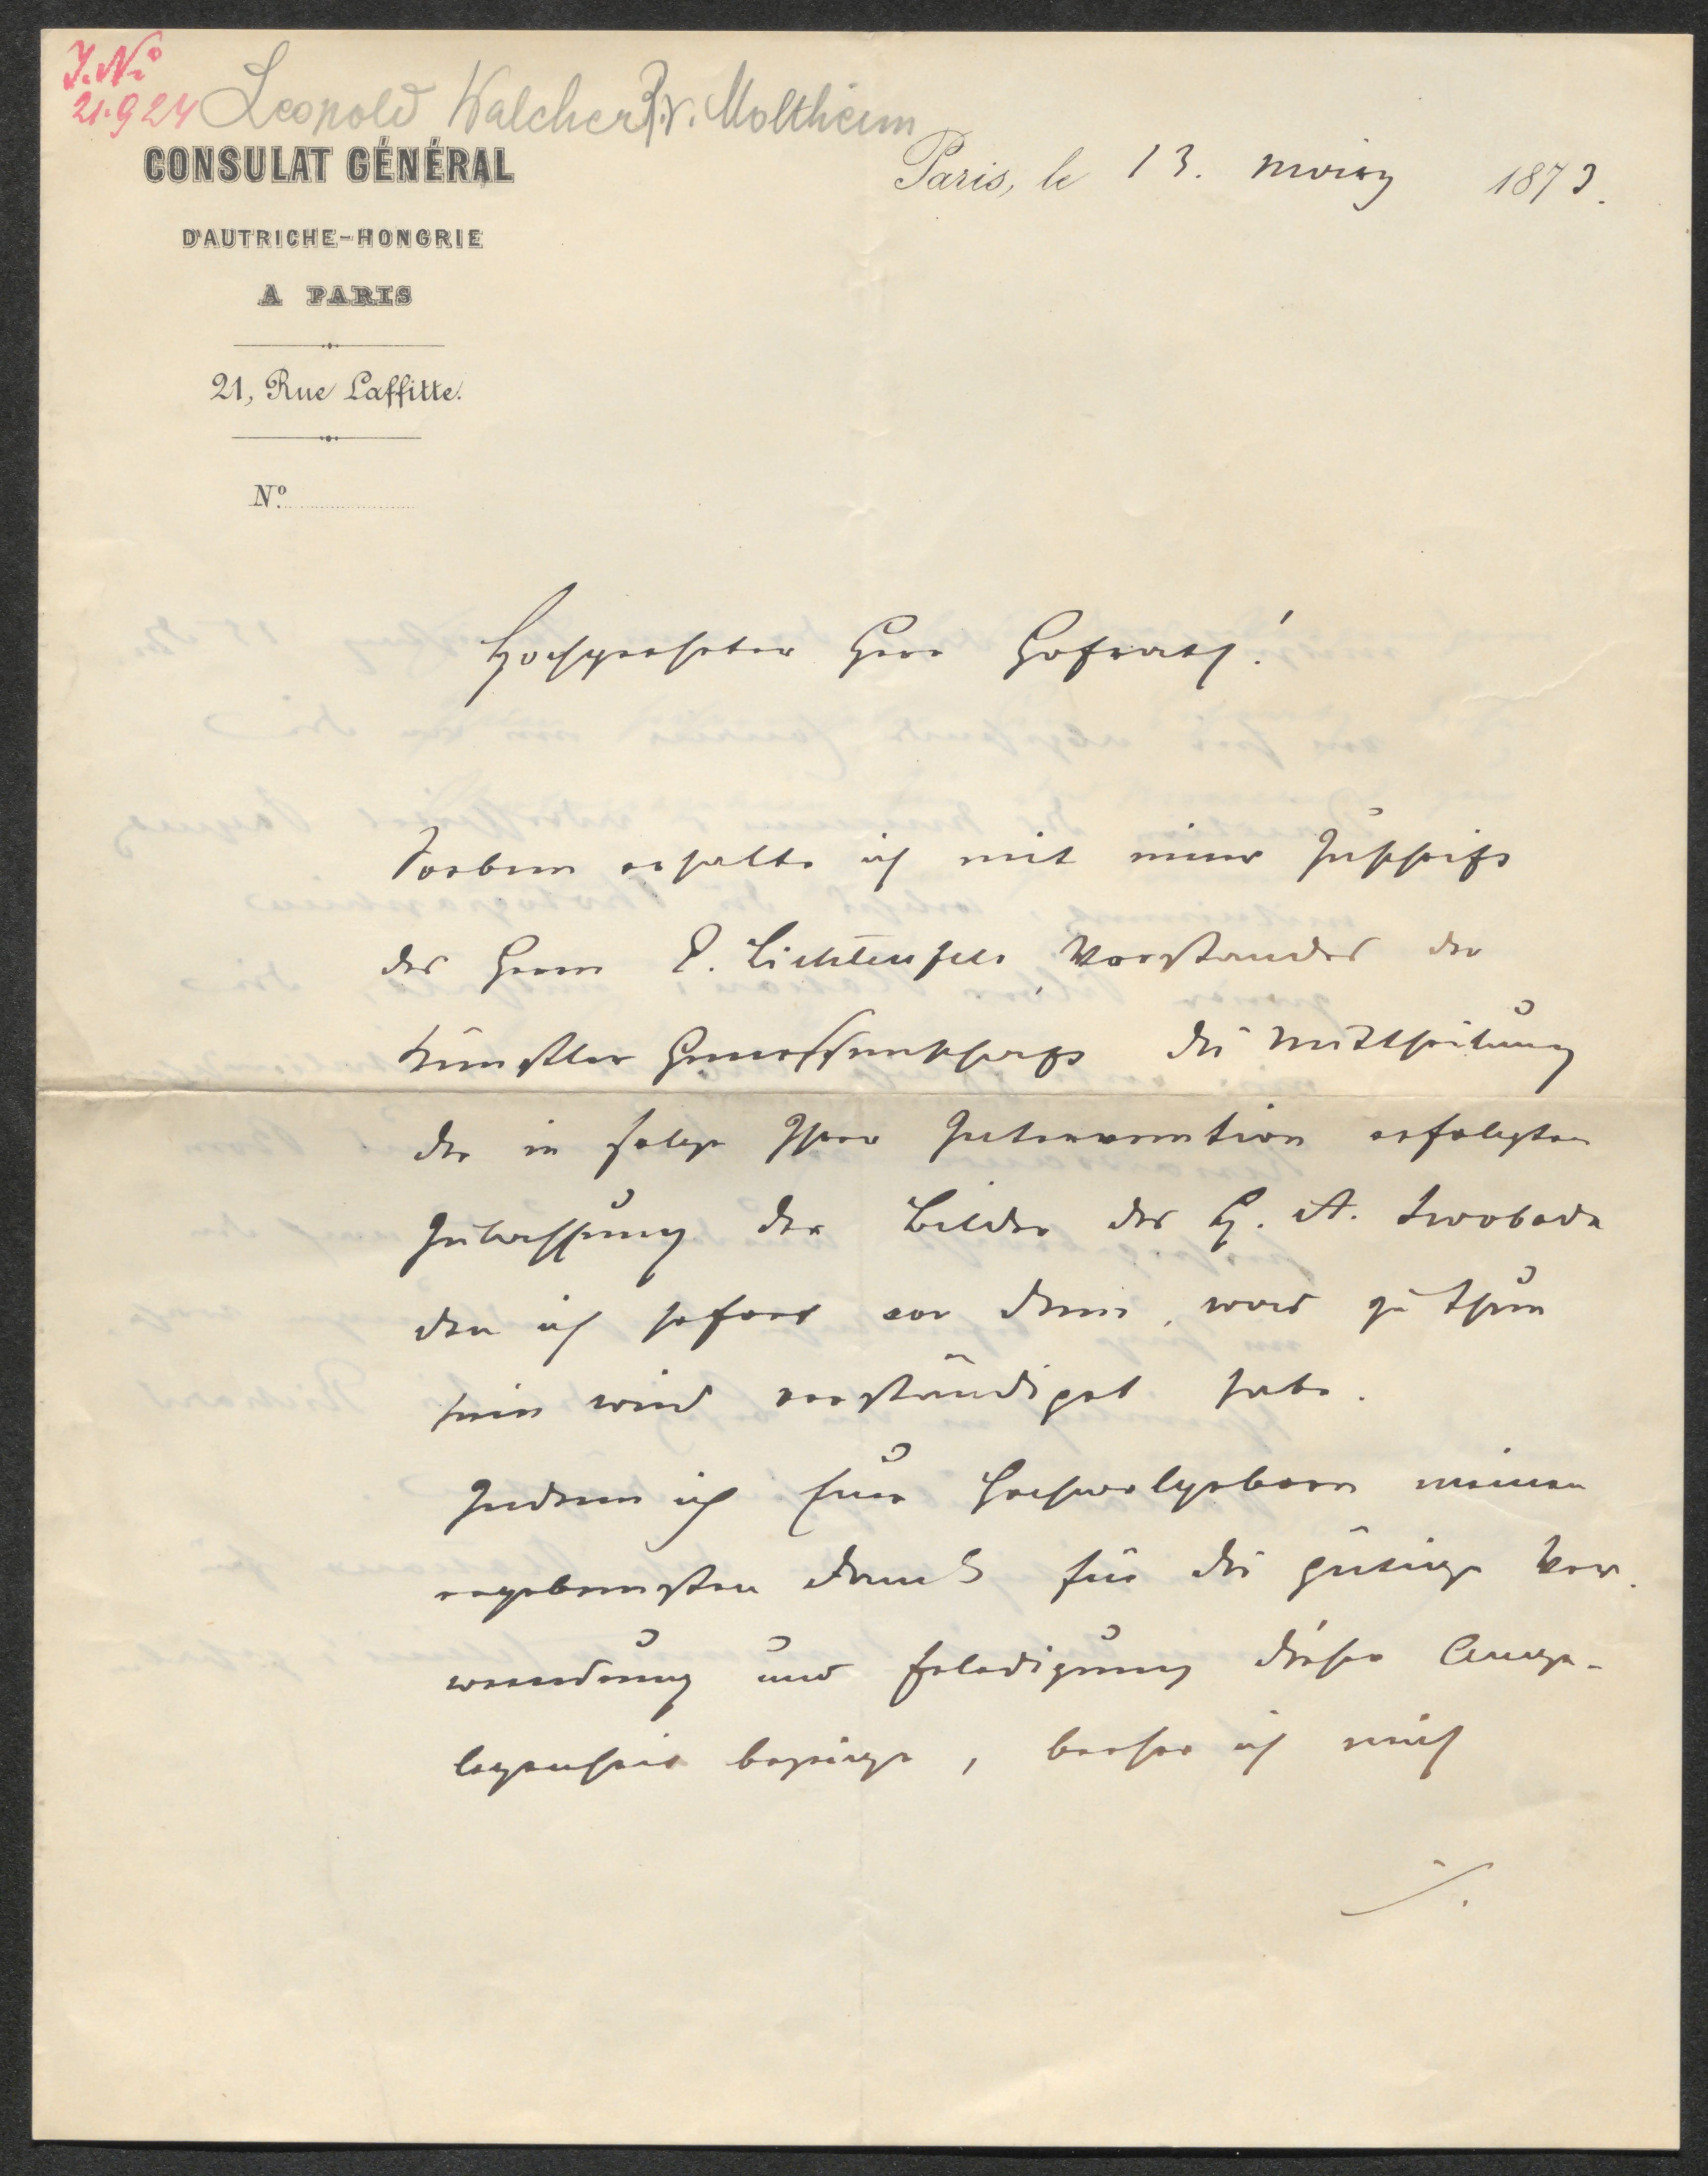 J.N.
21.924
Leopold Walcher R. v. Moltheim
CONSULAT GÉNÉRAL
D'AUTRICHE-HONGRIE
A PARIS
21, Rue Laffitte.
Nº
Paris, le 13. März 1873.
Hochgeehrter Herr Hofrath!
Soeben erhalte ich mit einer Zuschrift
des Herrn E. Lichtenfels Vorstandes der
Künstler Genossenschaft die Mittheilung
der in Folge Ihrer Intervention erfolgten
Zulassung der Bilder des H. A. Swoboda
den ich sofort von dem, was zu thun
sein wird verständiget habe.
Indem ich Euer Hochwolgeboren meinen
ergebensten Dank für die gütige Ver-
wendung und Erledigung dieser Ange-
legenheit bezeige, beehre ich mich